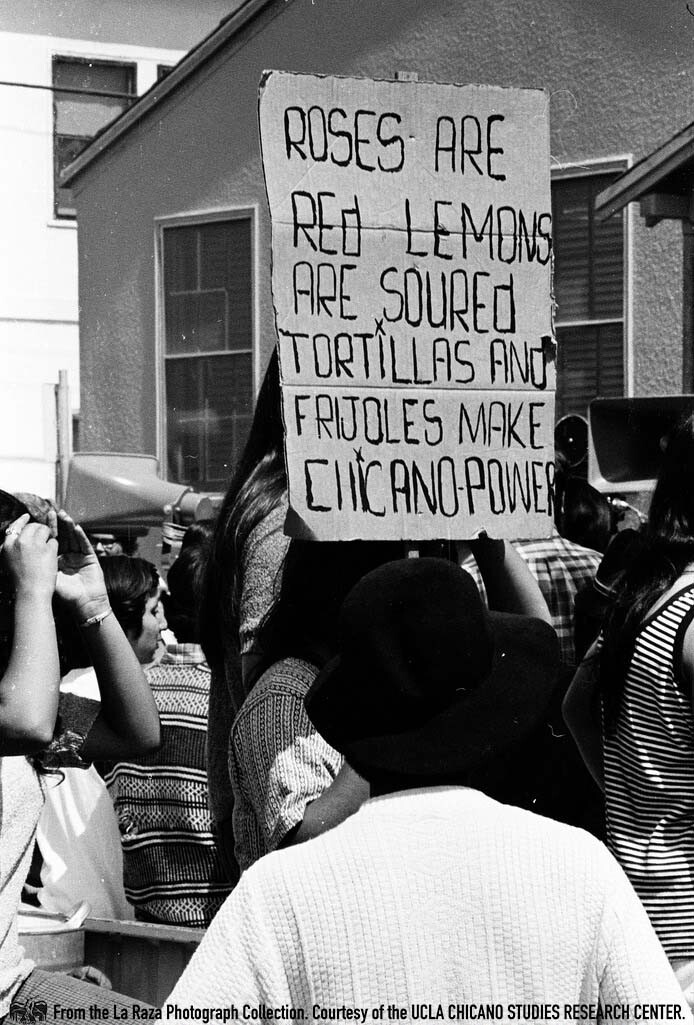 ROSES ARE
REd LEMONS
ARE SOUREd
TORTILLAS ANd
FRIJOLES MAKE
CHICANO-POWER
From the La Raza Photograph Collection. Courtesy of the UCLA CHICANO STUDIES RESEARCH CENTER.